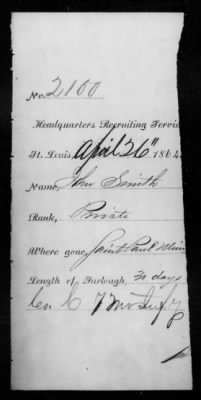 No. 2100
Headquarters Recruiting Servic
St. Louis, April 26" 1864
Name, John Smith
Rank, Private
Where gone, Saint Paul Minn
Length of Furlough, days
Co. C 7